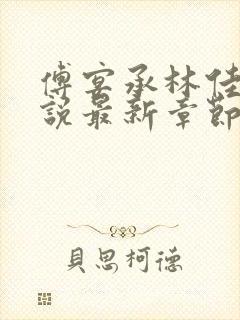 傅宴承林佳
說最新章節
貝思柯德